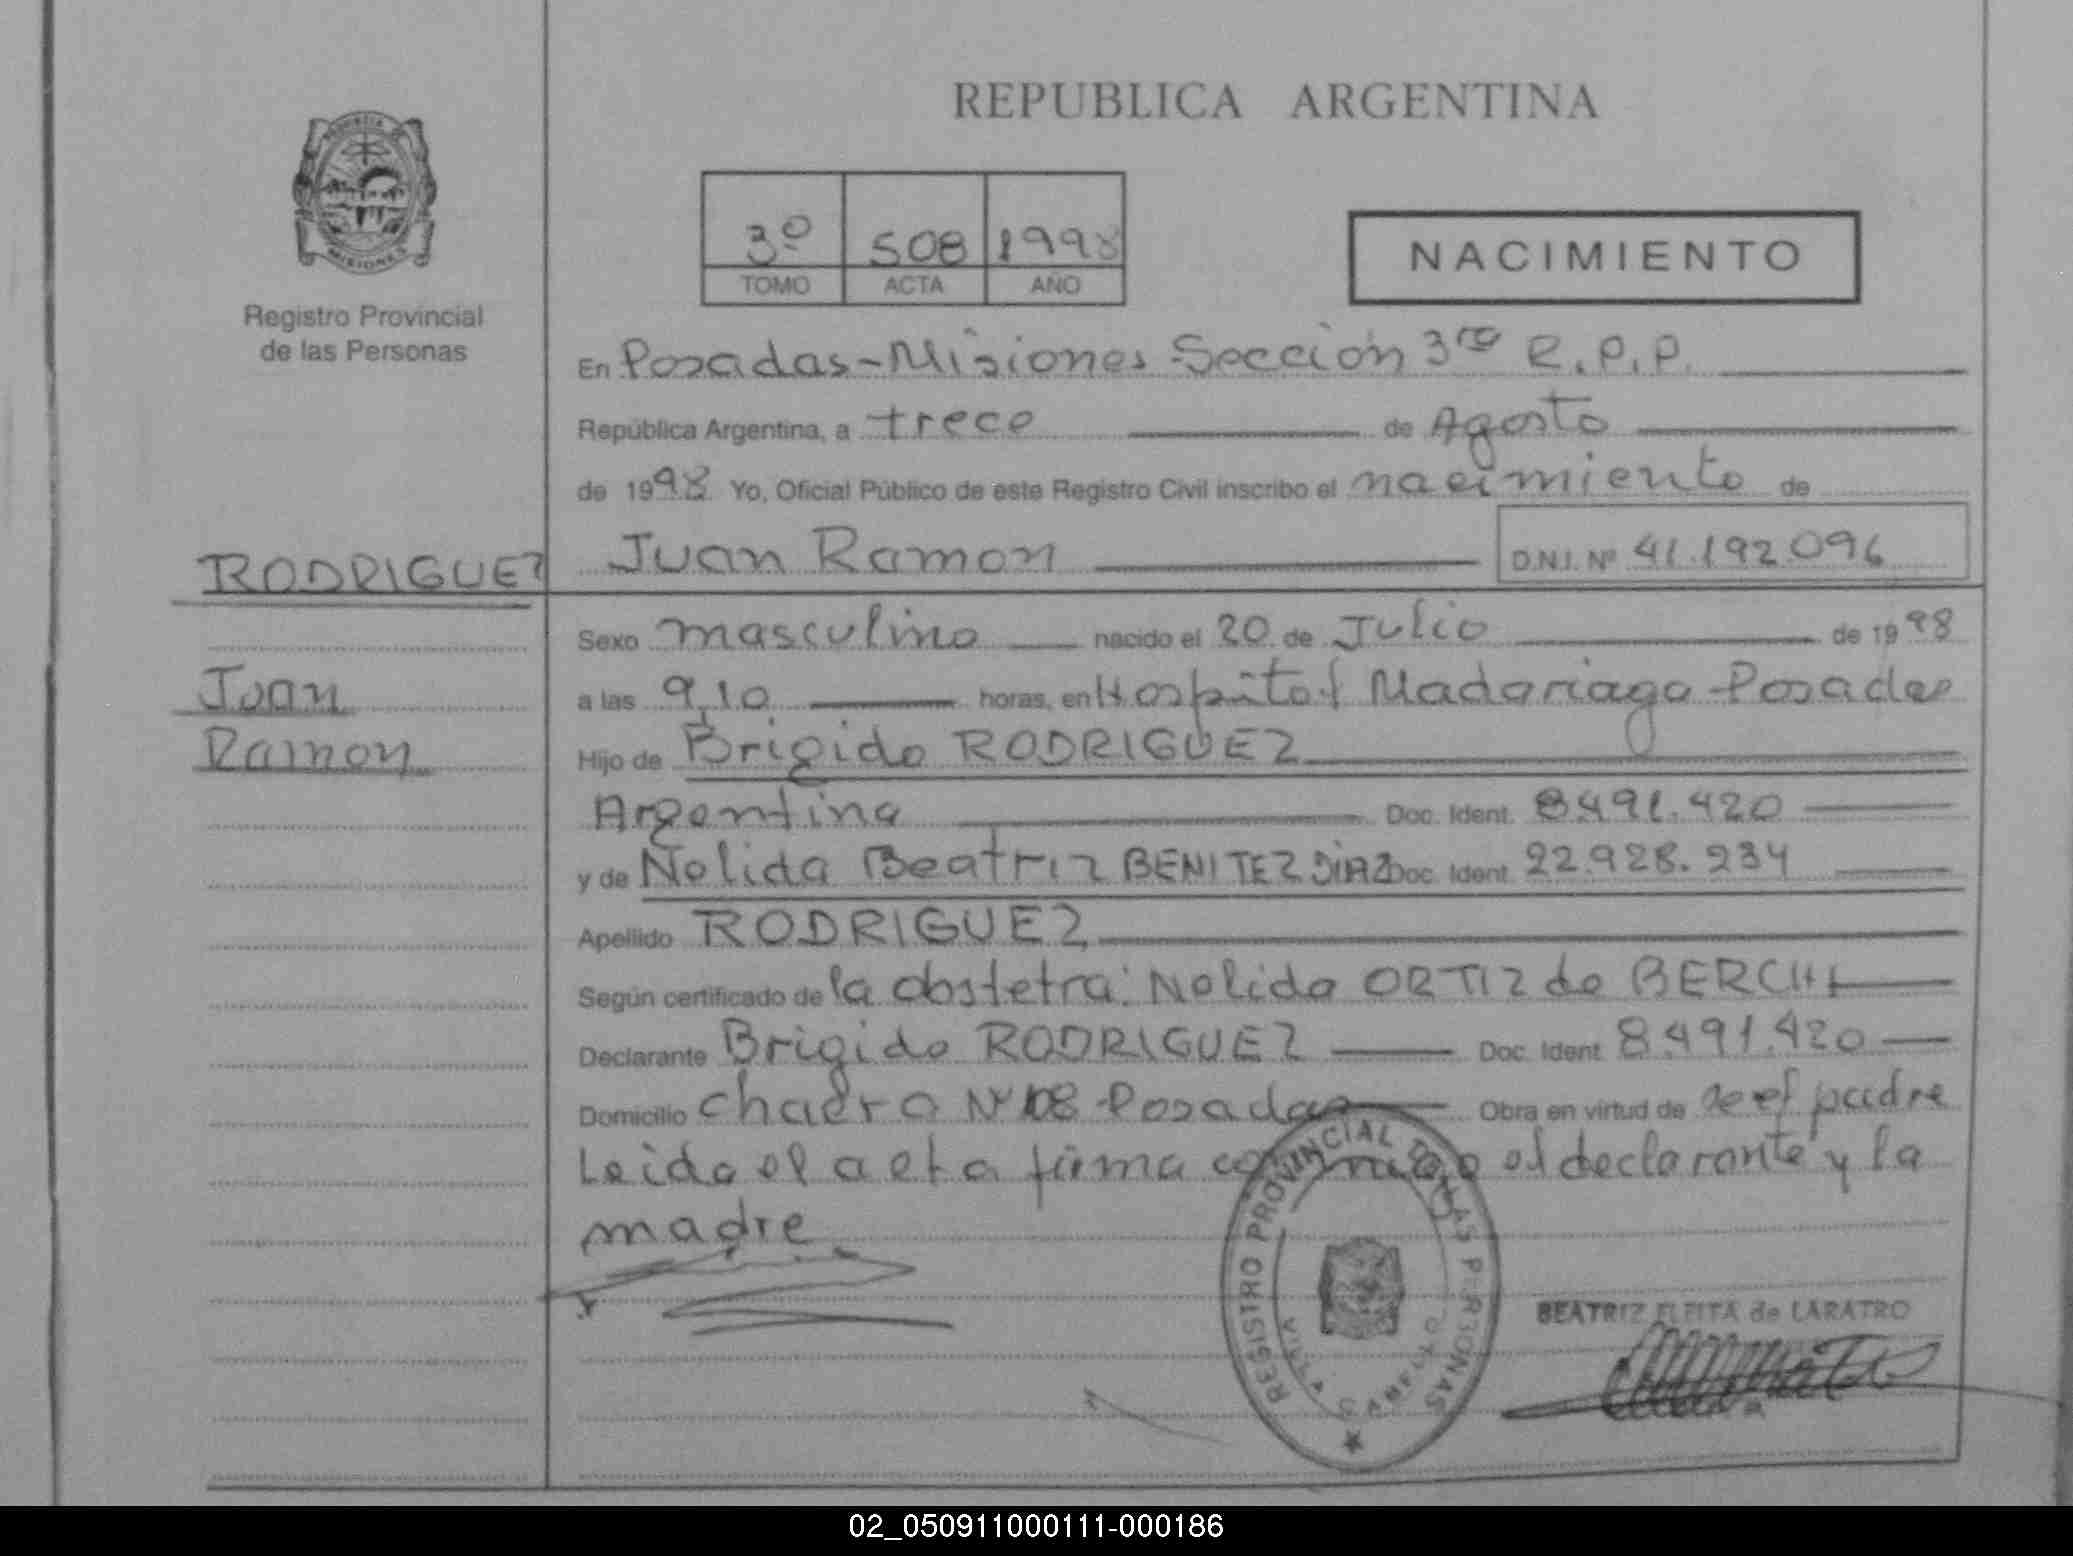 REPUBLICA ARGENTINA
PROVINCIA DE MISIONES
Registro Provincial
de las Personas
3º 508 1998
TOMO ACTA AÑO
NACIMIENTO
En Posadas-Misiones Sección 3ra R.P.P.
República Argentina, a trece de Agosto
de 1998 Yo, Oficial Público de este Registro Civil inscribo el nacimiento de
RODRIGUEZ
Juan Ramon D.N.I. Nº 41.192.096
Sexo masculino nacido el 20 de Julio de 1998
Juan
Ramon
a las 9,10 horas, en Hospital Madariaga-Posadas
Hijo de Brigido RODRIGUEZ
Argentina Doc. Ident. 8.491.420
y de Nelida Beatriz BENITEZ DIAZ Doc. Ident. 22.928.234
Apellido RODRIGUEZ
Según certificado de la obstetra: Nelida ORTIZ de BERCHI
Declarante Brigido RODRIGUEZ Doc. Ident 8.491.420
Domicilio chacra Nº 108-Posadas Obra en virtud de se el padre
Leida el acta firma conmigo el declarante y la
madre
REGISTRO PROVINCIAL DE LAS PERSONAS
BEATRIZ FLEITA de LARATRO
02_050911000111-000186